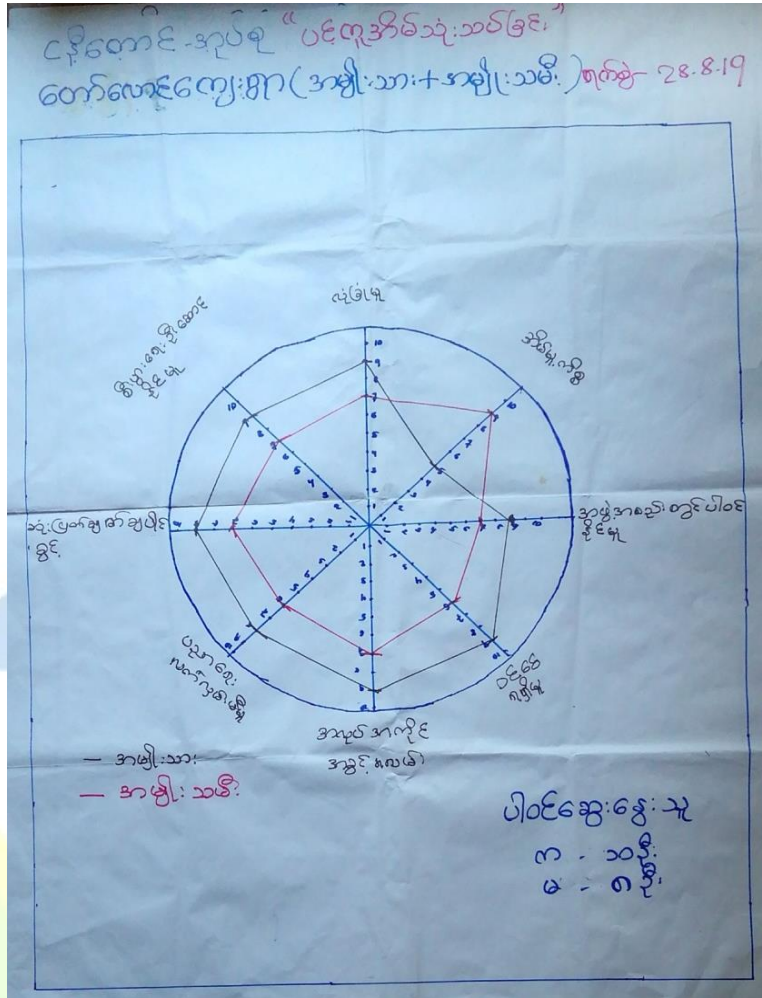 ငနီတောင်-အုပ်စု "ပင့်ကူအိမ်သုံးသပ်ခြင်း"
တော်လောင်ကျေးရွာ (အမျိုးသား+အမျိုးသမီး) ရက်စွဲ- 28.8.19
လုံခြုံမှု
အိမ်မှုကိစ္စ
အဖွဲ့အစည်းတွင်ပါဝင်
နိုင်မှု
ဝင်ငွေ
ရရှိမှု
အလုပ်အကိုင်
အခွင့်အလမ်း
ပညာရေး
လက်လှမ်းမီမှု
ဆုံးဖြတ်ချက်ချပိုင်
ခွင့်
ရွာရေး ဦးဆောင်
နိုင်မှု
— အမျိုးသား
— အမျိုးသမီး
ပါဝင်ဆွေးနွေးသူ
က - ၁၀ဦး
မ - ၈ဦး